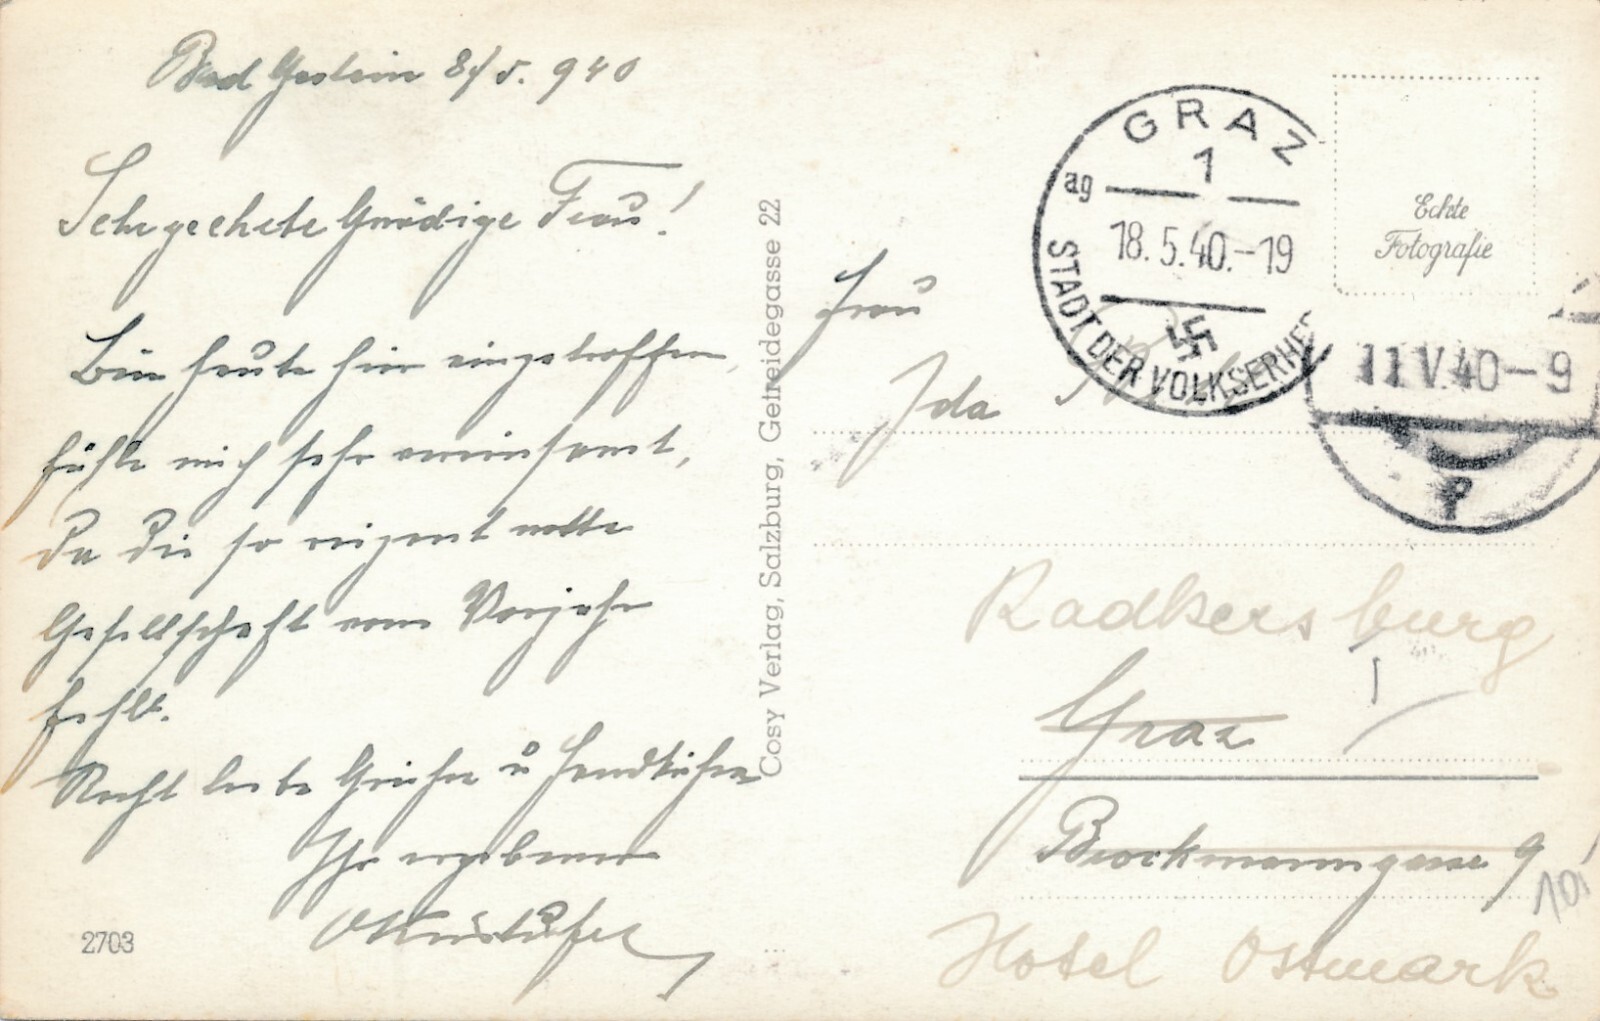 Bad Gastein 8/5. 940
Sehrgeehrte Gnädige Frau!
Bin heute hier eingetroffen,
fühle mich sehr vereinsamt,
da die so reizent nette
Gesellschaft vom Vorjahr
fehlt.
Recht liebe Grüße u Handküsse
Ihr ergebener
2703
Cosy Verlag, Salzburg, Getreidegasse 22
GRAZ
1
ag
18.5.40.-19
STADT DER VOLKSERHE
Echte
Fotografie
11.V.40-9
Frau
Ida
Radkersburg
Graz
Brockmanngasse 9
10!
Hotel Ostmark